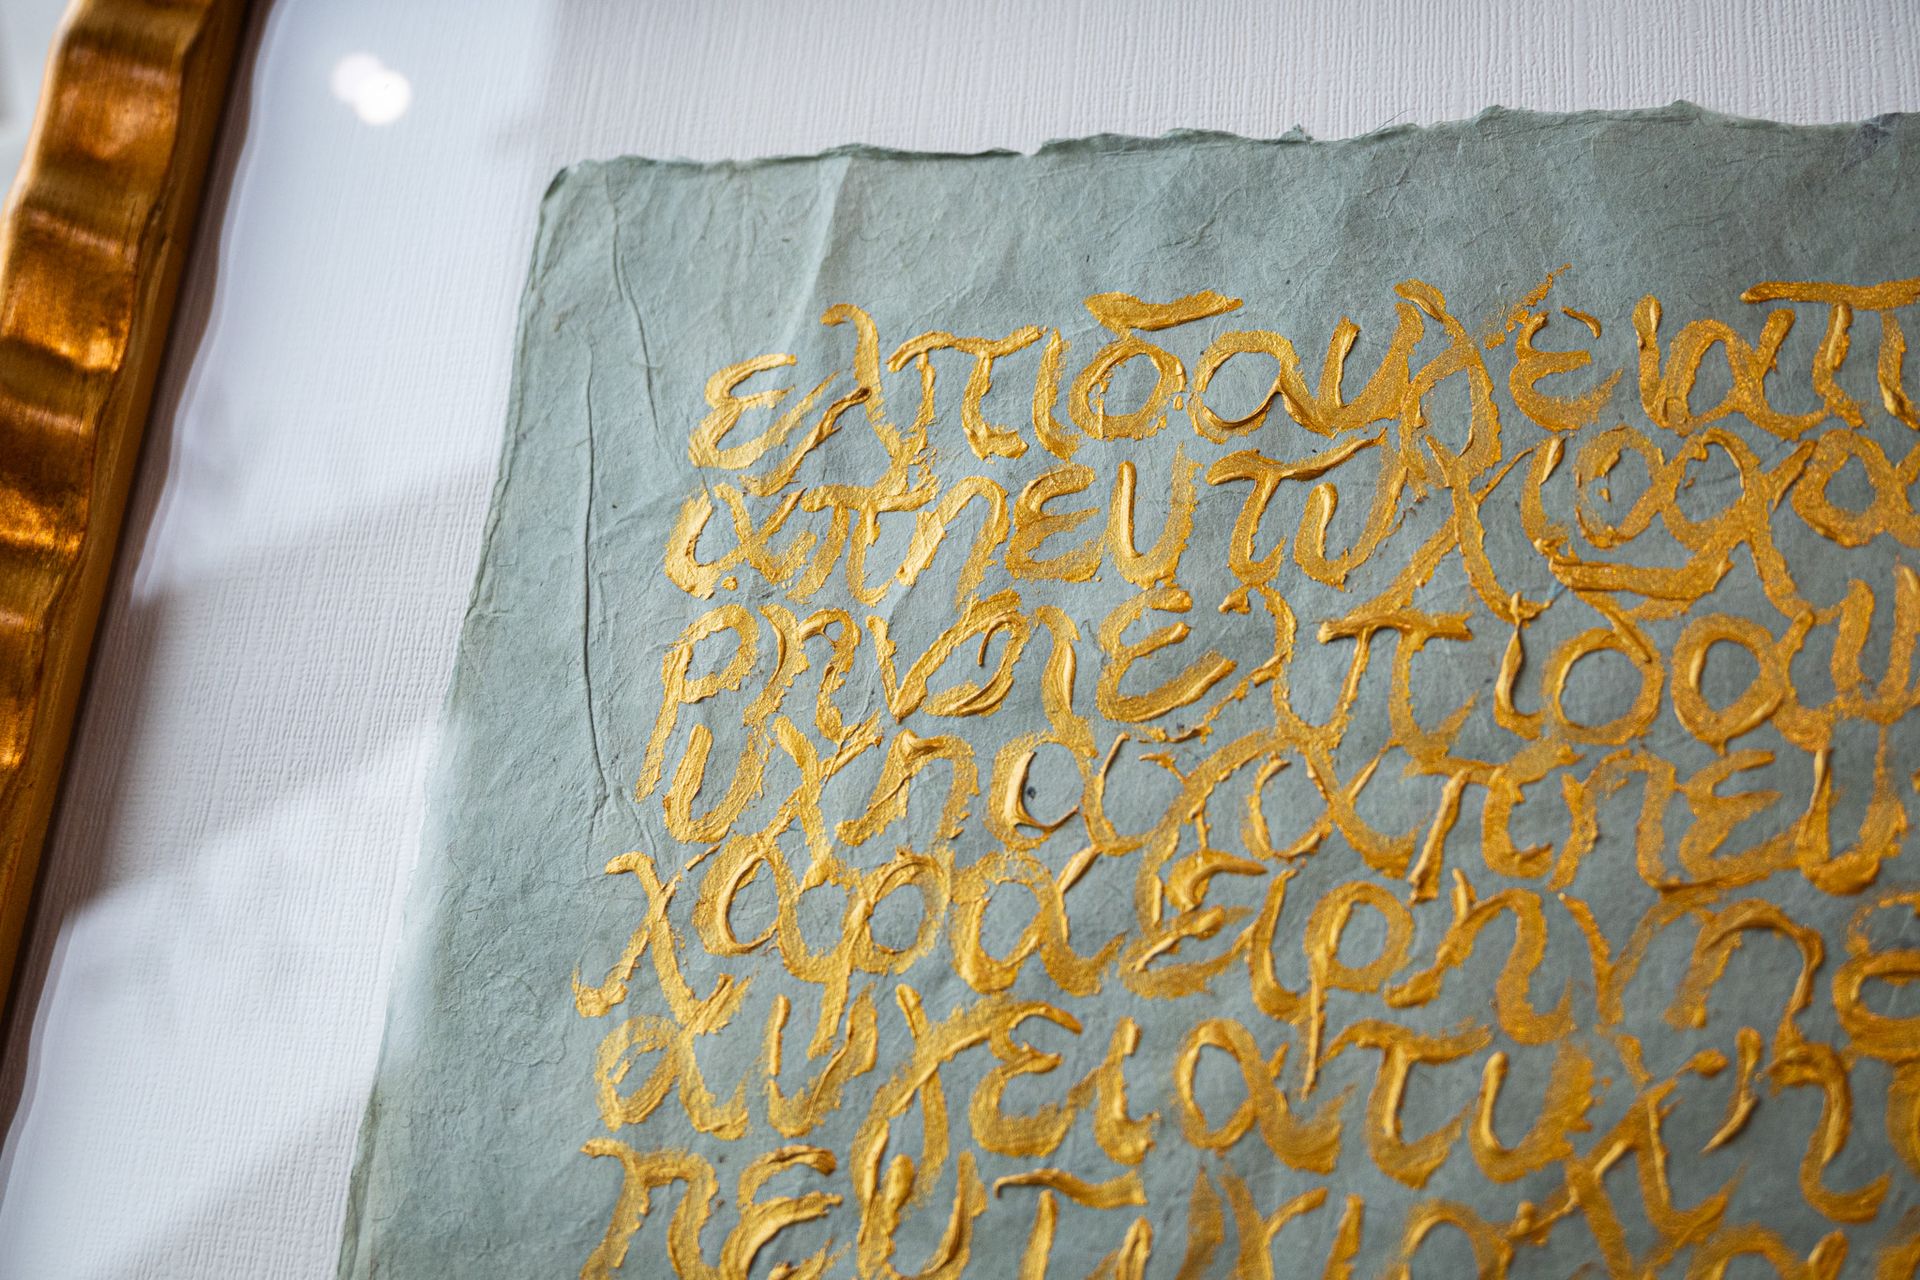 ελπιδαυγέιαπ
απηευτυχιαχα
ρηνηελπιδαυ
τυχηαγαπηευ
χαραειρηνηε
αυγειατυχη
πευτυχια